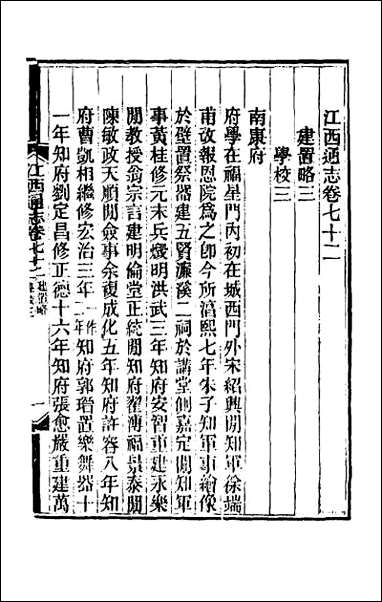 江西通志卷七十二
建置略三
學校三
南康府
府學在福星門內初在城西門外宋紹興閒知軍徐端
甫改報恩院爲之卽今所湻熙七年朱子知軍事繪像
於壁置祭器建五賢濂溪二祠於講堂側嘉定閒知軍
事黃桂修元末兵燬明洪武三年知府安智重建永樂
閒教授翁宗言建明倫堂正統閒知府翟溥福景泰閒
陳敏政天順閒僉事余複成化五年知府許容八年知
府曹凱相繼修宏治三年一作二年知府郭瑨置樂舞器十
一年知府劉定昌修正德十六年知府張愈嚴重建萬
江西通志卷七十二 建置略
一